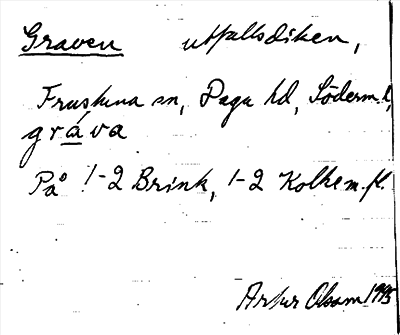 Graven utfallsdiken,
Frustuna sn, Daga hd, Söderm.l,
gráva
På 1-2 Brink, 1-2 Kolhem.fl.
Artur Olsson 1995